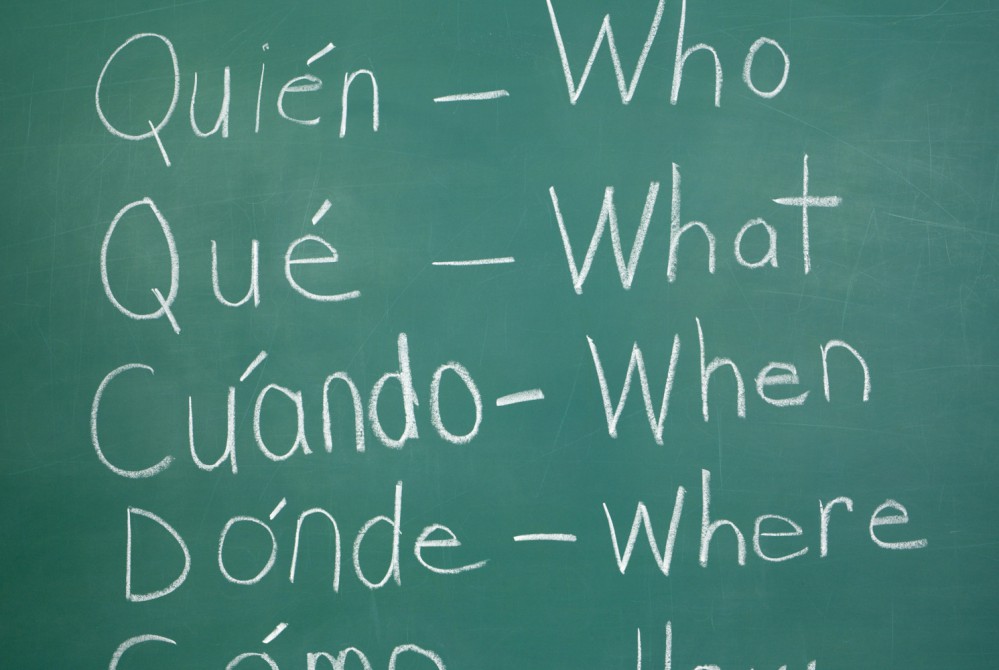 Quién – Who
Qué – What
Cuándo – When
Dónde – Where
Cómo How